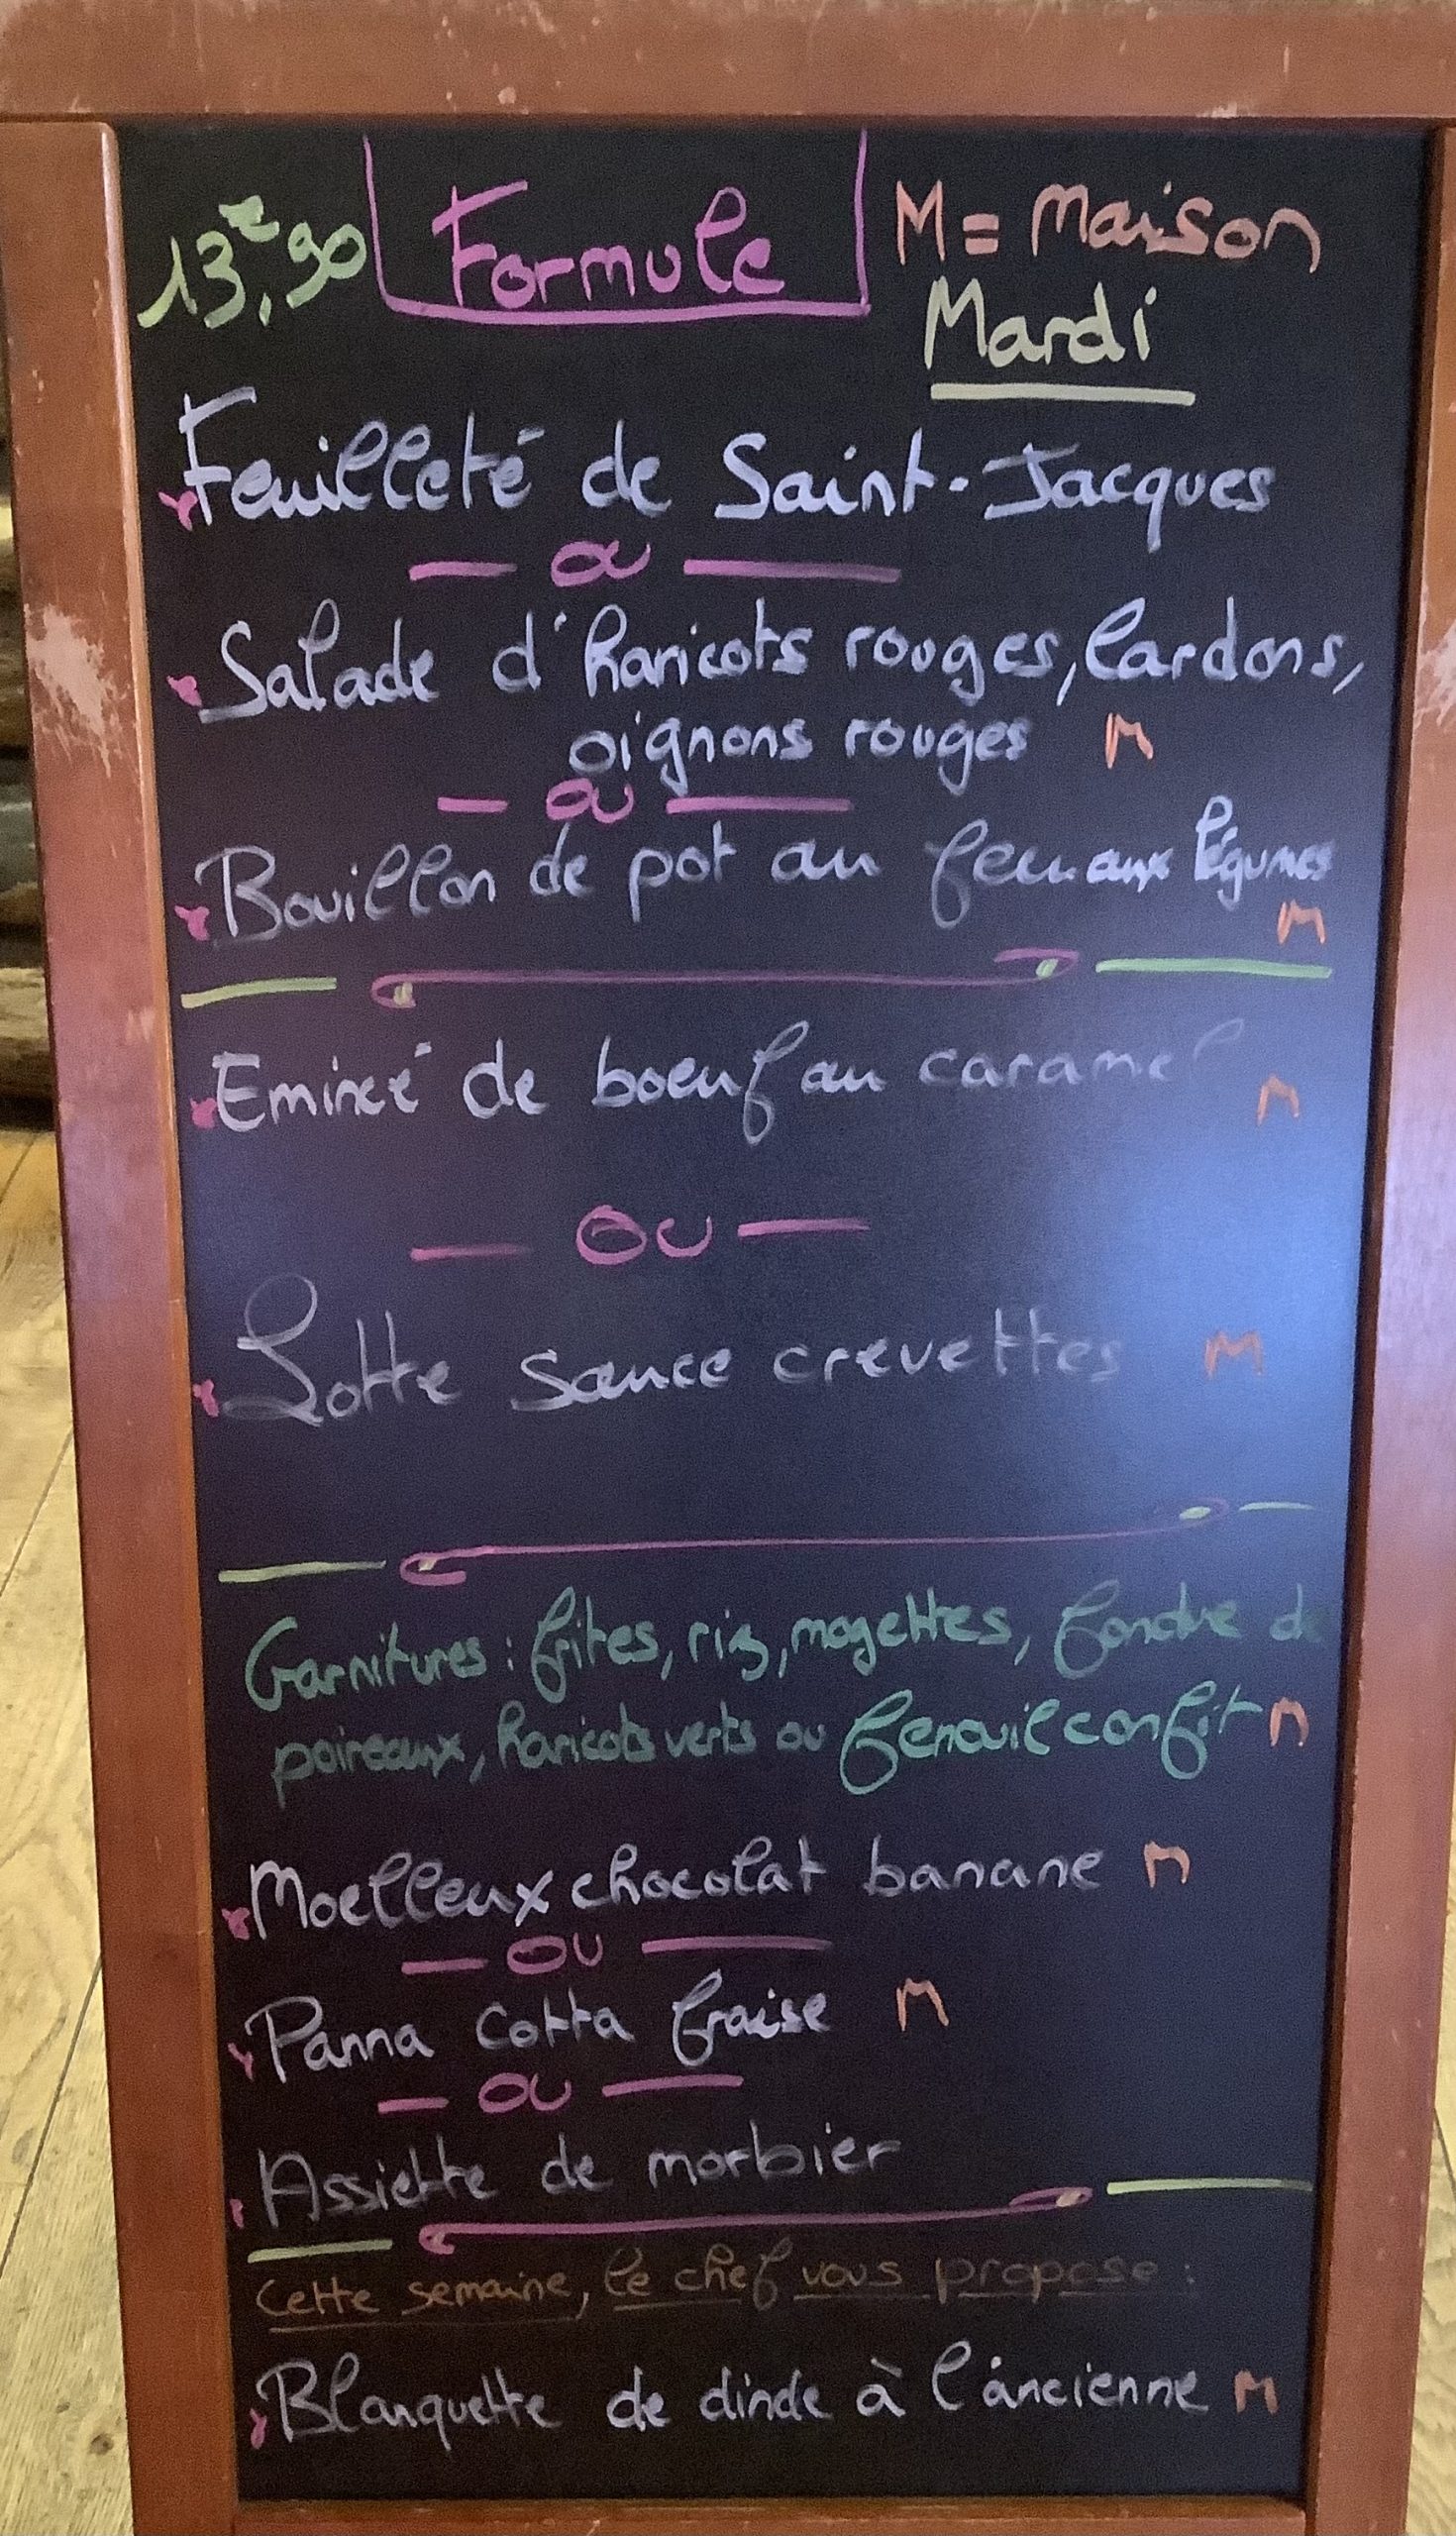 13€,90 Formule M = Maison
Mardi
Feuilleté de Saint-Jacques
ou
Salade d'haricots rouges, lardons,
oignons rouges M
ou
Bouillon de pot au feu aux légumes
M
Emincé de boeuf au caramel M
ou
Lotte sauce crevettes M
Garnitures : frites, riz, mogettes, fondue de
poireaux, haricots verts ou fenouil confit M
Moelleux chocolat banane M
ou
Panna cotta fraise M
ou
Assiette de morbier
Cette semaine, le chef vous propose :
Blanquette de dinde à l'ancienne M